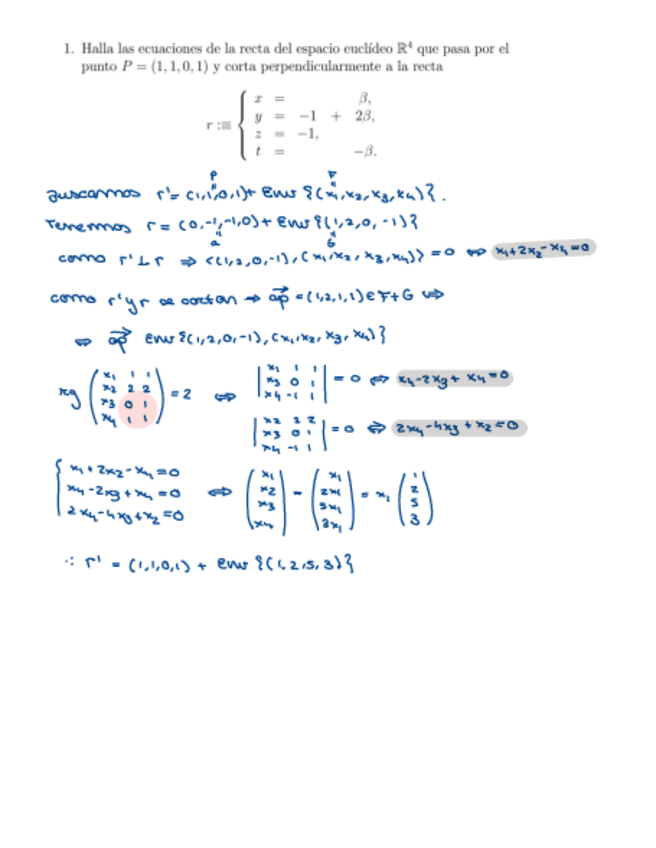 1. Halla las ecuaciones de la recta del espacio euclídeo ℝ⁴ que pasa por el
punto P = (1, 1, 0, 1) y corta perpendicularmente a la recta
r :≡ { x = β,
y = −1 + 2β,
z = −1,
t = −β.
P F
Buscamos r' = (1,1,0,1) + Env {(x₁,x₂,x₃,x₄)}.
Tenemos r = (0,-1,-1,0) + Env {(1,2,0,-1)}
a G
como r' ⊥ r ⇒ <(1,2,0,-1), (x₁,x₂,x₃,x₄)> = 0 ⇔ x₁+2x₂-x₄=0
como r' y r se cortan ⇒ ap = (1,2,1,1) ∈ F+G ⇔
⇔ ap env {(1,2,0,-1), (x₁,x₂,x₃,x₄)}
rg ( x₁ 1 1
x₂ 2 2
x₃ 0 1
x₄ -1 1 ) = 2 ⇔ | x₁ 1 1
x₃ 0 1
x₄ -1 1 | = 0 ⇔ x₁-2x₃+x₄=0
| x₂ 2 2
x₃ 0 1
x₄ -1 1 | = 0 ⇔ 2x₄-4x₃+x₂=0
{ x₁+2x₂-x₄=0
x₁-2x₃+x₄=0
2x₄-4x₃+x₂=0 ⇔ ( x₁
x₂
x₃
x₄ ) = ( x₁
2x₁
5x₁
3x₁ ) = x₁ ( 1
2
5
3 )
∴ r' = (1,1,0,1) + env {(1,2,5,3)}